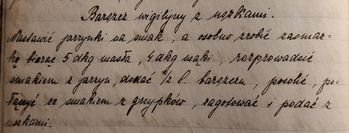 Barszcz wigilijny z uszkami.
Nastawić jarzynki na smak, a osobno zrobić zasmaż-
kę biorąc 5 dkg masła, 4 dkg mąki, rozprowadzić
smakiem z jarzyn, dodać 1/2 l. barszczu, posolić, po-
łączyć ze smakiem z grzybków, zagotować i podać z
uszkami.